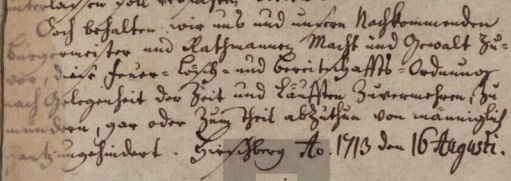 Doch behalten wir uns und unsern Nachkommenden
Bürgermeister und Rathmannen Macht und Gewalt Zu-
vor, diese Feuer- Lösch- und bereitschaffts-Ordnung
nach Gelegenheit der Zeit und Läufften Zuvermehren, Zu
mindern, gar oder Zum Theil abZuthun von männiglich
gantz ungehindert. Hirschberg Ao. 1713 den 16 Augusti.